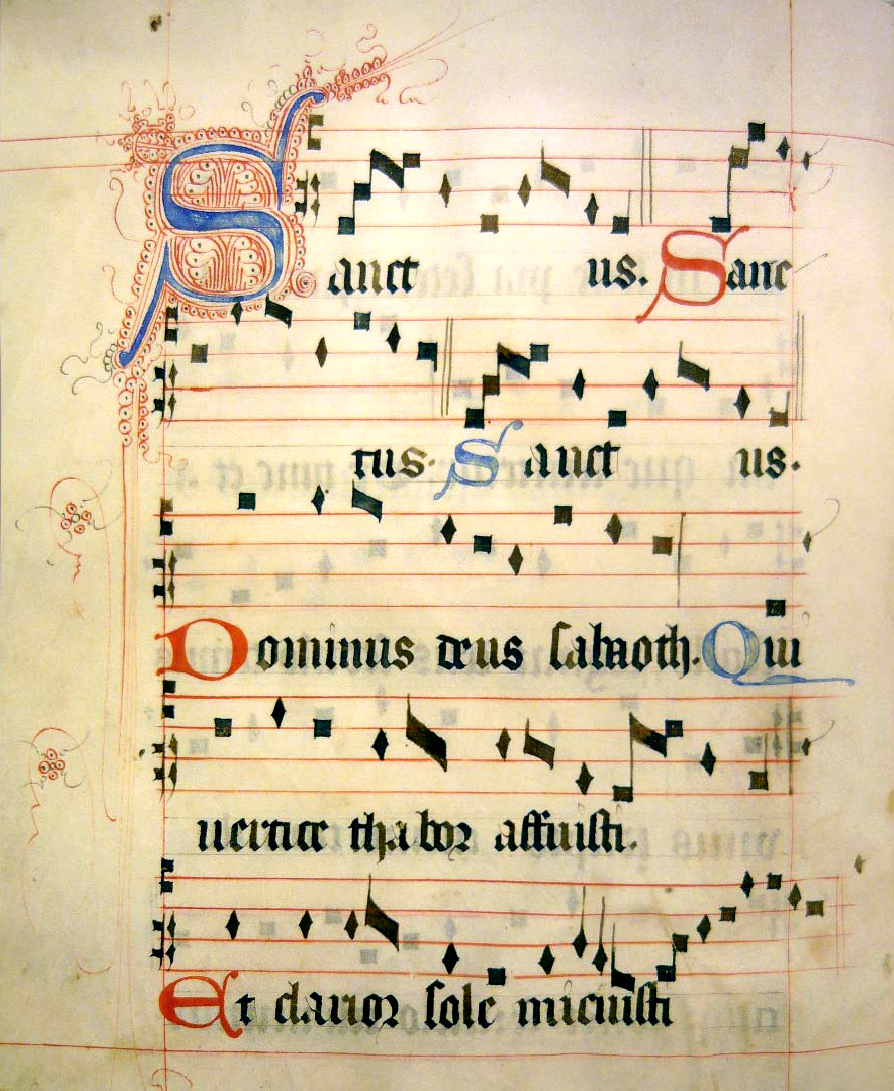 Sanctus. Sanc
tus. Sanctus.
Dominus deus sabaoth. Qui
uertice thabor affuisti.
Et clarior sole micuisti